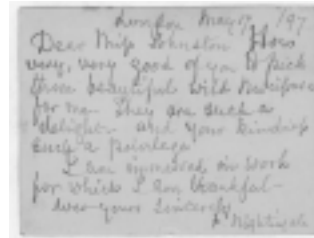 London May 17 /97
Dear Miss Johnston How
very, very good of you to pick
these beautiful wild
for me. They are such a
delight - and your kindness
such a privilege
I am immersed in work
for which I am thankful -
ever yours sincerely
F. Nightingale